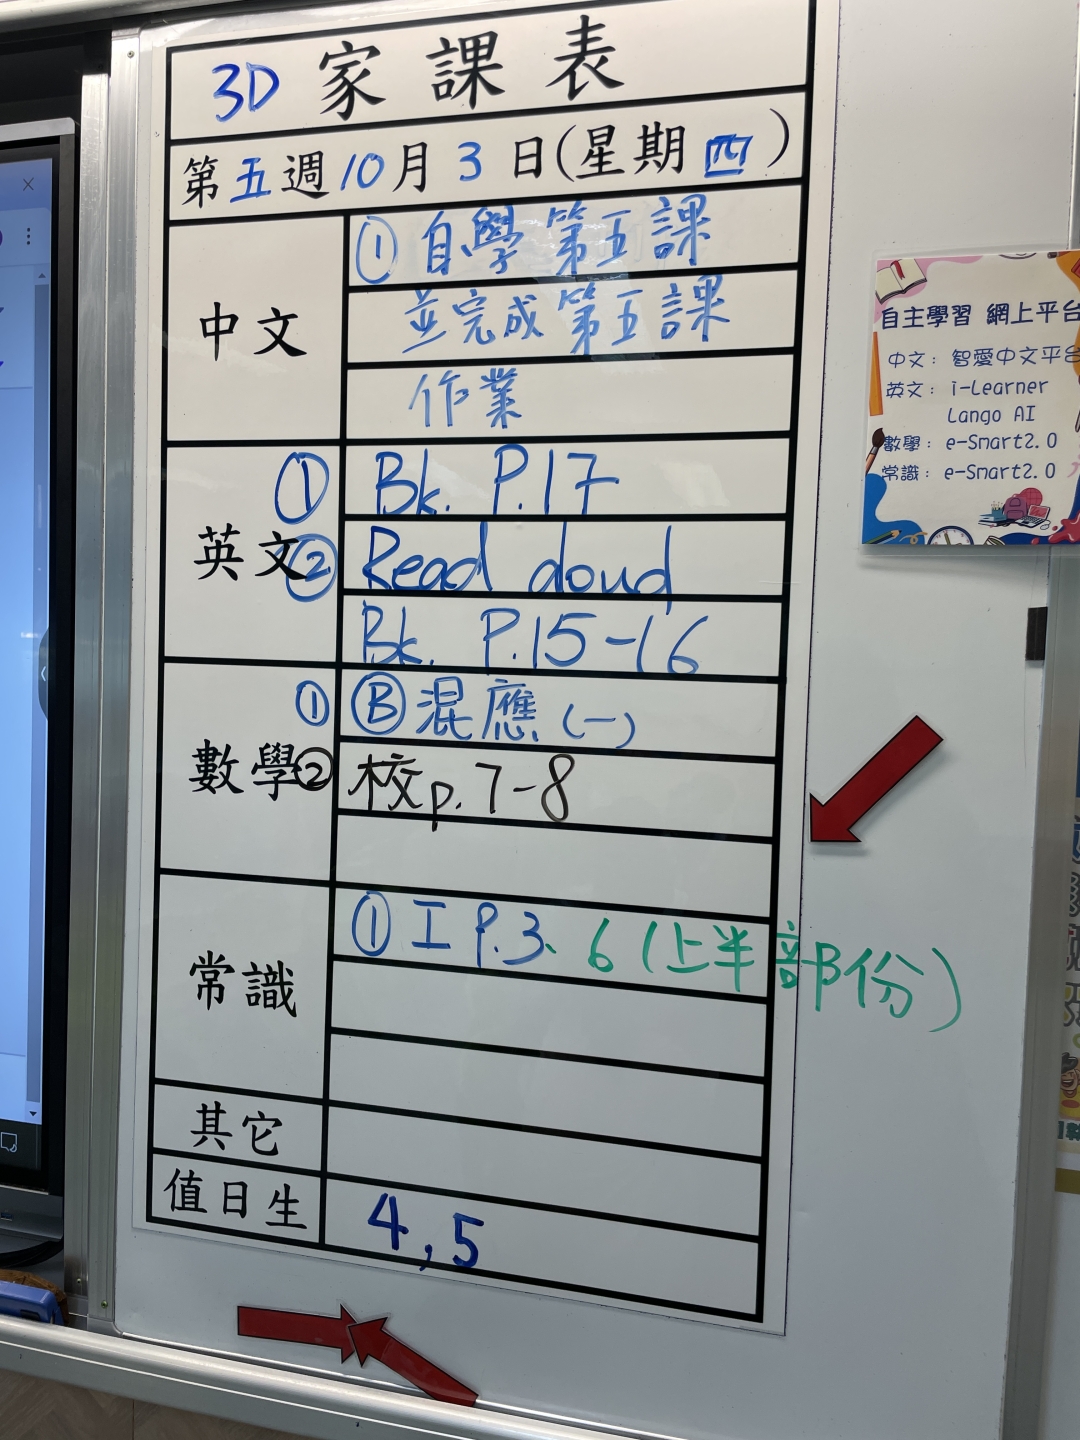 3D 家課表
第五週10月3日(星期四)
中文
① 自學第五課
並完成第五課
作業
英文
① Bk. P.17
② Read aloud
Bk. P.15-16
數學
① Ⓑ混應(一)
② 校p.7-8
常識
① 工 P.3、6(上半部份)
其它
值日生
4,5
自主學習 網上平台
中文：智愛中文平台
英文：i-Learner
Lango AI
數學：e-Smart2.0
常識：e-Smart2.0